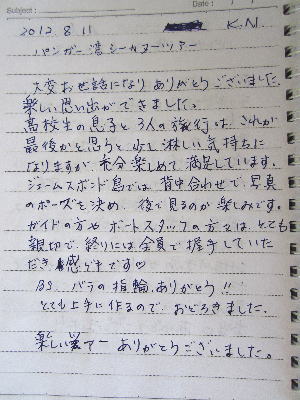 Subject:
Date:
2012.8.11 K.N.
パンガー湾シーカヌーツアー
大変お世話になりありがとうございました。
楽しい思い出ができました。
高校生の息子と3人の旅行は、これが
最後かと思うと少し淋しい気持ちに
なりますが充分楽しめて満足しています。
ジェームスボンド島では背中合わせで写真
のポーズを決め、後で見るのが楽しみです。
ガイドの方やボートスタッフの方々は、とても
親切で、終りには全員で握手していた
だき感ゲキです♡
バラの指輪ありがとう!!
とても上手に作るので、おどろきました。
楽しいツアーありがとうございました。